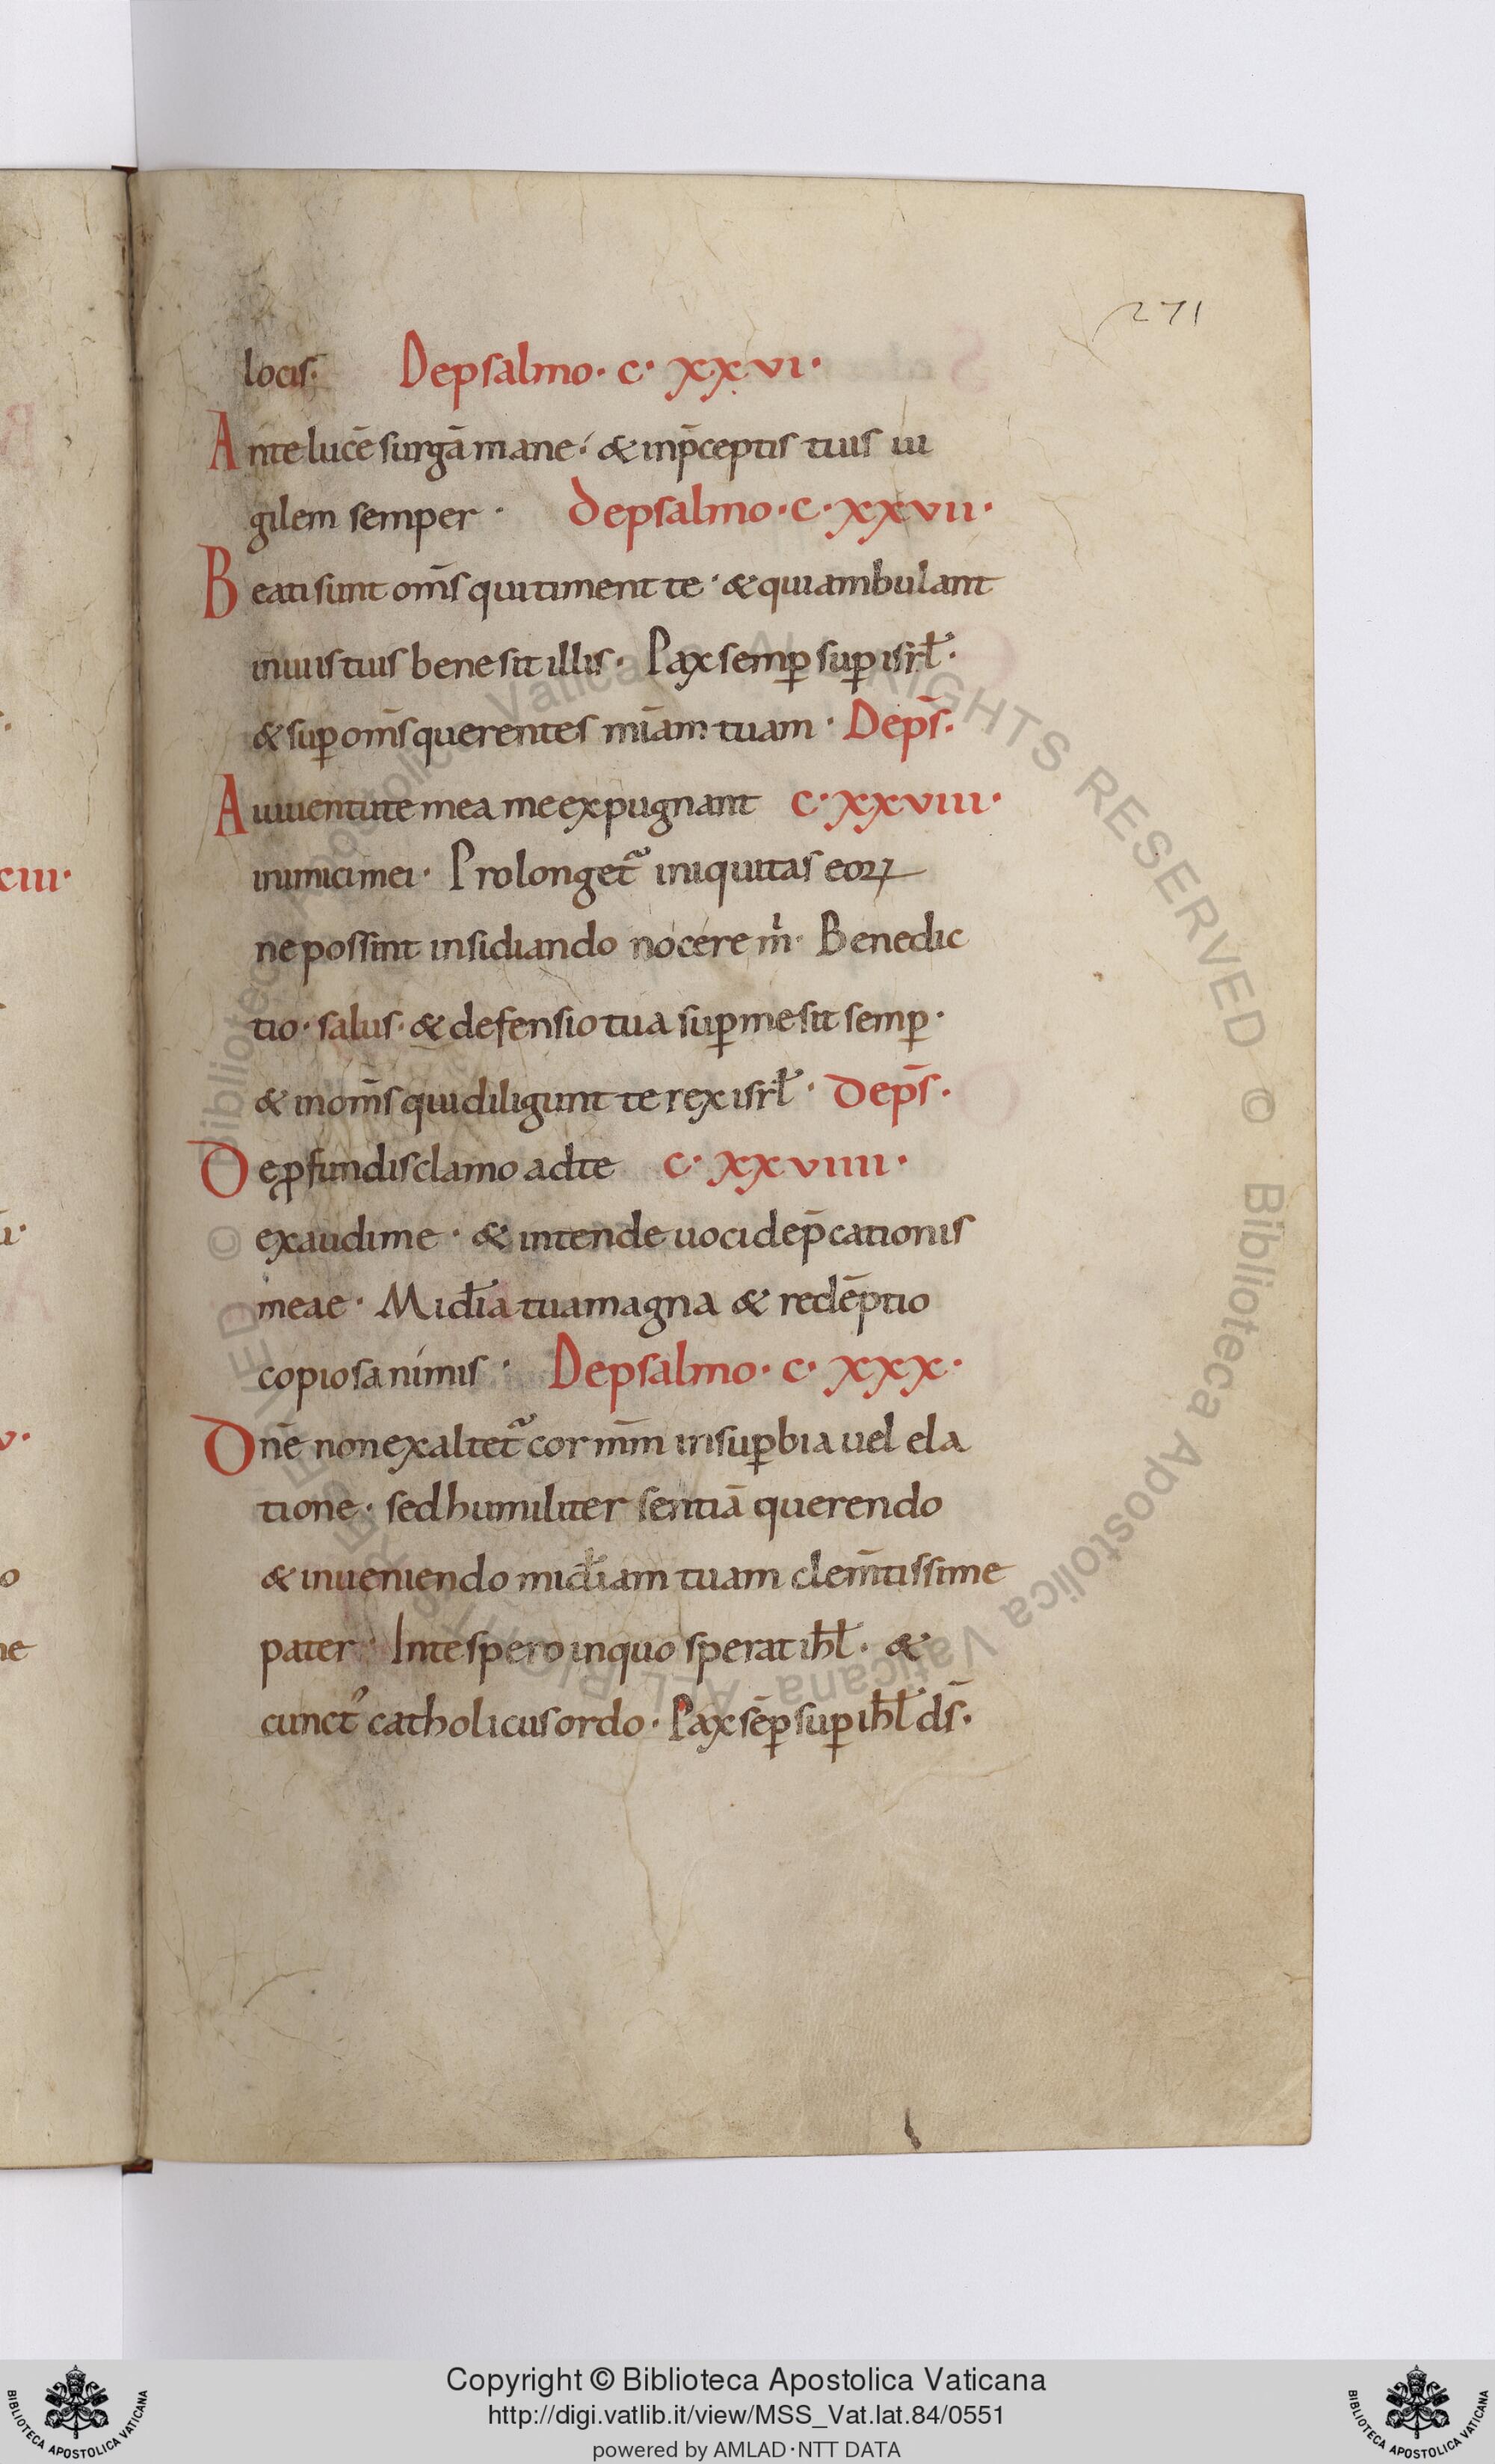 271
locis. De psalmo. c. xxvi.
Ante lucē surgā mane. & in p̄ceptis tuis ui
gilem semper. De psalmo. c. xxvii.
Beati sunt om̄s qui timent te. & qui ambulant
in uiis tuis bene sit illis. Pax semꝑ suꝑ isrł.
& suꝑ om̄s querentes mīam tuam. De ps̄.
A iuuentute mea me expugnant c. xxviii.
inimici mei. Prolonget᷑ iniquitas eoꝝ
ne possint insidiando nocere m̄. Benedic
tio. salus. & defensio tua suꝑ me sit semꝑ.
& in om̄s qui diligunt te rex isrł. De ps̄.
De ꝓfundis clamo ad te c. xxviiii.
exaudi me. & intende uoci dep̄cationis
meae. Mid̄ia tua magna & redēptio
copiosa nimis. De psalmo. c. xxx.
Dn̄e non exaltet᷑ cor mm̄ in suꝑbia uel ela
tione. sed humiliter sentiā querendo
& inueniendo mid̄iam tuam clem̄tissime
pater. In te spero in quo sperat ihł. &
cunctꝰ catholicus ordo. Pax sēꝑ suꝑ ihł ds̄.
Copyright © Biblioteca Apostolica Vaticana
http://digi.vatlib.it/view/MSS_Vat.lat.84/0551
powered by AMLAD·NTT DATA
BIBLIOTECA APOSTOLICA VATICANA
BIBLIOTECA APOSTOLICA VATICANA